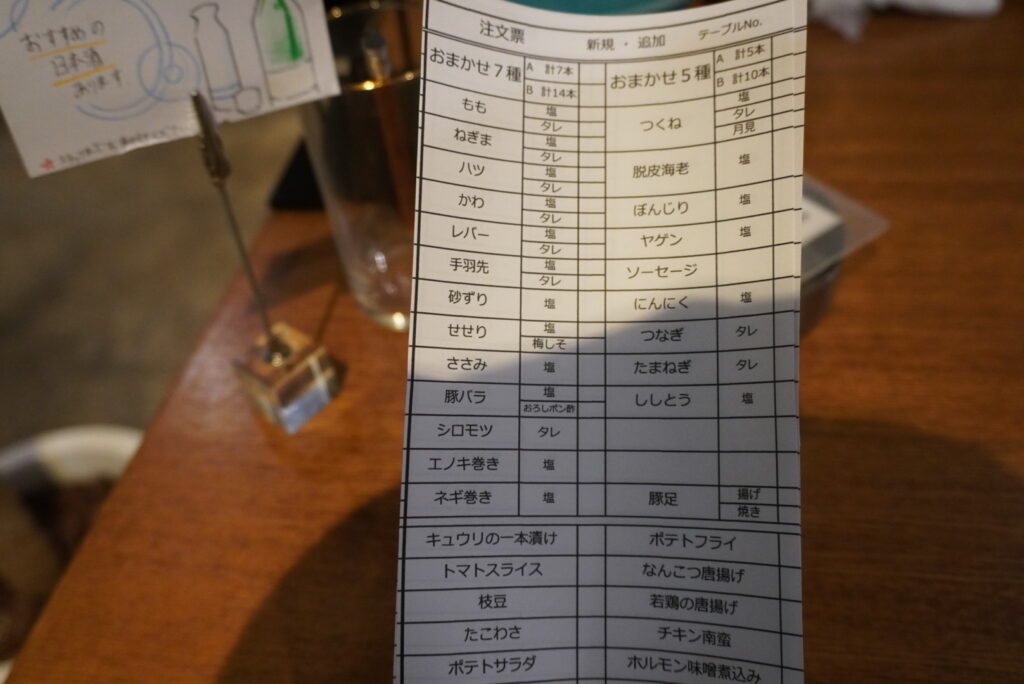 おすすめの
日本酒
あります
注文票 新規・追加 テーブルNo.
おまかせ7種 A 計7本 おまかせ5種 A 計5本
B 計14本 B 計10本
もも 塩 つくね 塩
タレ タレ
ねぎま 塩 月見
タレ
ハツ 塩 脱皮海老 塩
タレ
かわ 塩 ぼんじり 塩
タレ
レバー 塩 ヤゲン 塩
タレ
手羽先 塩 ソーセージ
タレ
砂ずり 塩 にんにく 塩
せせり 塩 つなぎ タレ
梅しそ
ささみ 塩 たまねぎ タレ
豚バラ 塩 ししとう 塩
おろしポン酢
シロモツ タレ
エノキ巻き 塩
ネギ巻き 塩 豚足 揚げ
焼き
キュウリの一本漬け ポテトフライ
トマトスライス なんこつ唐揚げ
枝豆 若鶏の唐揚げ
たこわさ チキン南蛮
ポテトサラダ ホルモン味噌煮込み